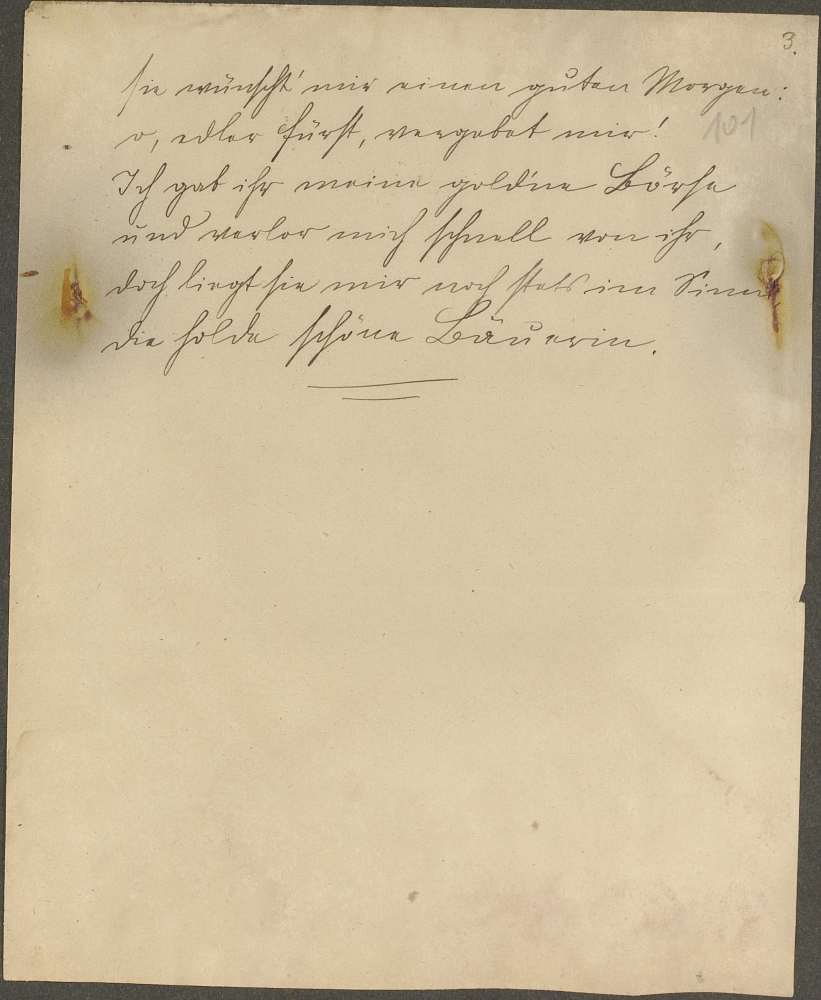 3.
sie wünscht' mir einen guten Morgen:
o, edler Fürst, vergebet mir!
101
Ich gab ihr meine gold'ne Börse
und verlor mich schnell von ihr,
doch liegt sie mir noch stets im Sinn
die holde schöne Bäuerin.